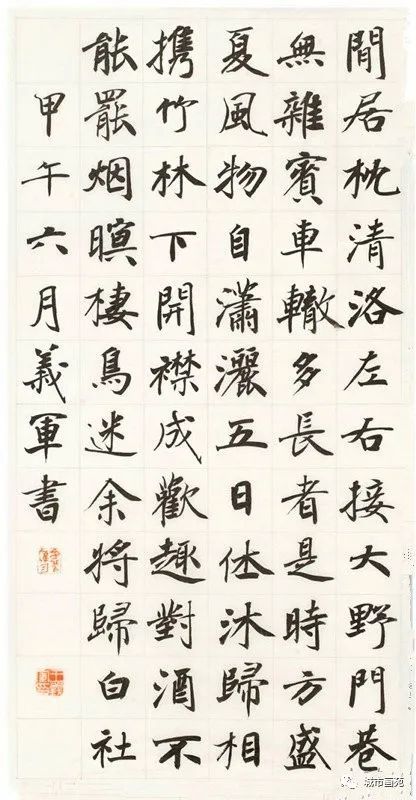 閒居枕清洛左右接大野門巷
無雜賓車轍多長者是時方盛
夏風物自瀟灑五日休沐歸相
携竹林下開襟成歡趣對酒不
能罷烟暝棲鳥迷余將歸白社
甲午六月義軍書
城市画苑